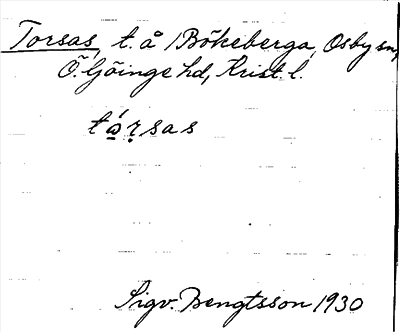 Torsås, t. å Bökeberga, Osby sn,
Ö. Göinge hd, Krist. l.
tá̠ṛsas
Sigv. Bengtsson 1930